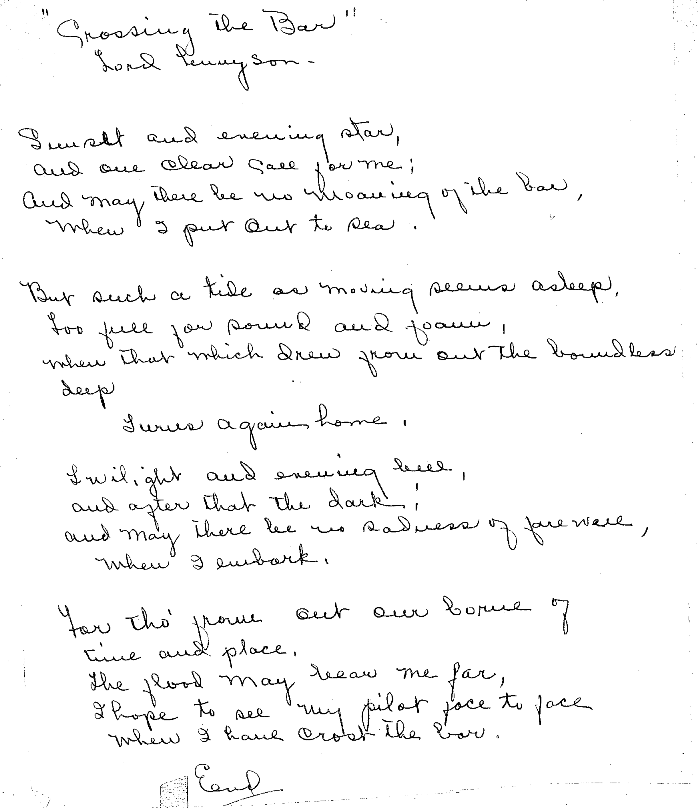 "Crossing the Bar"
Lord Tennyson.
Sunset and evening star,
and one clear call for me;
And may there be no moaning of the bar,
When I put out to sea.
But such a tide as moving seems asleep,
Too full for sound and foam,
when that which drew from out the boundless
deep
Turns again home.
Twilight and evening bell,
and after that the dark;
and may there be no sadness of farewell,
When I embark.
For tho' from out our borne of
time and place,
The flood may bear me far,
I hope to see my pilot face to face
When I have crost the bar.